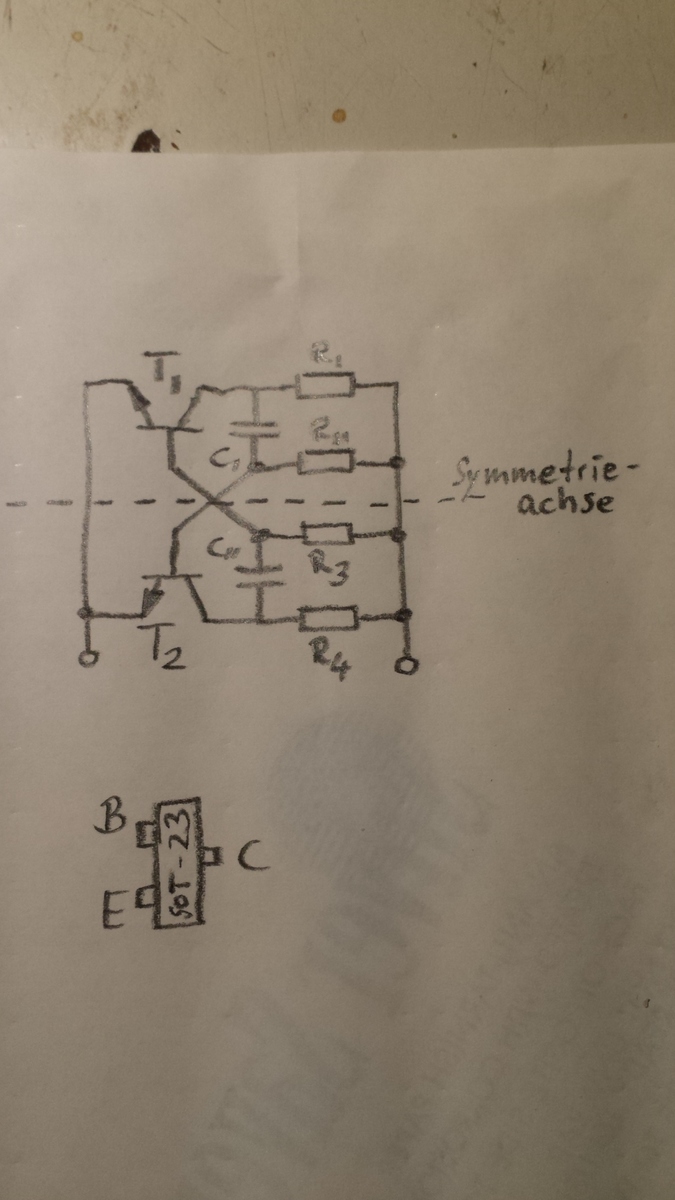 T1
R1
R2
C1
Symmetrie-
achse
C2
R3
T2
R4
B
SOT-23
C
E